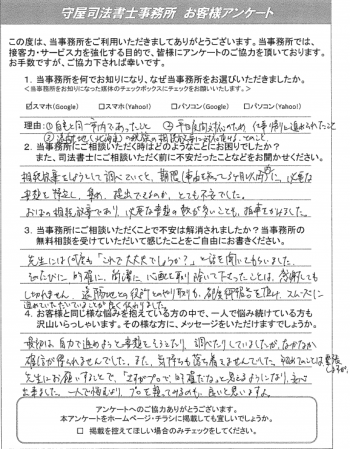 守屋司法書士事務所 お客様アンケート
この度は、当事務所をご利用いただきましてありがとうございます。当事務所では、
接客力・サービス力を強化する目的で、皆様にアンケートのご協力を頂いております。
お手数ですが、ご協力下されば幸いです。
1. 当事務所を何でお知りになり、なぜ当事務所をお選びいただきましたか。
<当事務所をお知りになった媒体のチェックボックスにチェックをお願いいたします。>
☑スマホ(Google) □スマホ(Yahoo!) □パソコン(Google) □パソコン(Yahoo!)
理由: ①自宅と同一市内であったこと ②平日夜間対応のため 仕事帰りに進められたこと
2. 当事務所にご相談いただく時はどのようなことにお困りでしたか?
また、司法書士にご相談いただく前に不安だったことなどをお聞かせください。
相続放棄をしようとして調べていくと、期限
書類を特定し、集め、提出できるのか、とても不安でした。
必要な書類の数が多いことも、拍車をかけました。
3. 当事務所にご相談いただくことで不安は解消されましたか?当事務所の
無料相談を受けていただいて感じたことをご自由にお書きください。
先生には何度も「これで大丈夫でしょうか?」と話を聞いてもらいました。
そのたびに的確に、簡潔に心配を取り除いて下さったことは、感謝しても
しきれません。遠隔地との役所とのやり取りも、都度御報告を頂け、スムーズに
進めていただいていることが良く伝わりました。
4. お客様と同じような悩みを抱えている方の中で、一人で悩み続けている方も
沢山いらっしゃいます。その様な方に、メッセージをいただけますでしょうか。
最初は、自力で進めようと書類をそろえたり、調べたりしていましたが、なかなか
確信が得られませんでした。また、気持ちも落ち着きませんでした。
先生にお願いすることで、「さすがプロで、的確だな」と思えるようになり、安心
出来ました。一人で悩むより、プロを頼ってみるのも、良いと思いますよ。
アンケートへのご協力ありがとうございます。
本アンケートをホームページ・チラシに掲載しても宜しいでしょうか。
□ 掲載を控えてほしい場合のみチェックをしてください。